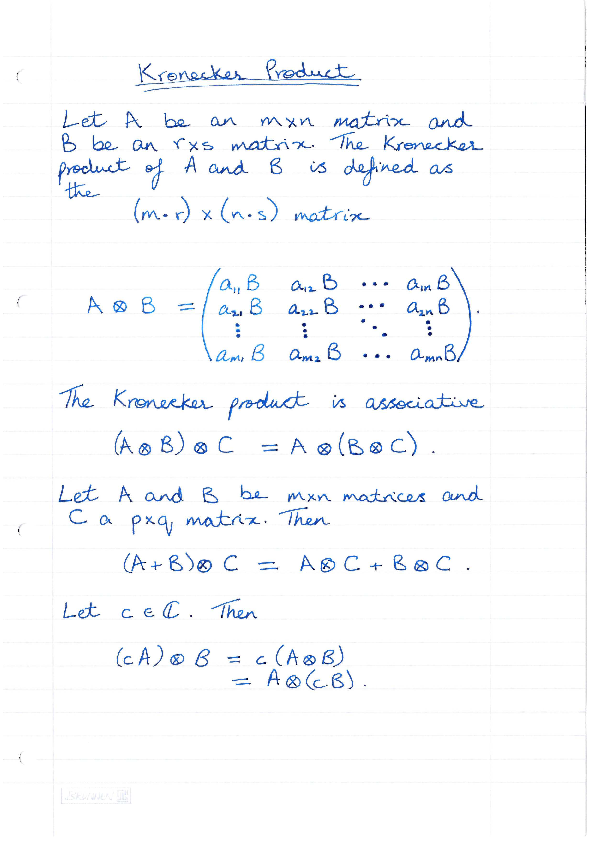 Kronecker Product
Let A be an m×n matrix and
B be an r×s matrix. The Kronecker
product of A and B is defined as
the
(m·r) × (n·s) matrix
A ⊗ B = ( a₁₁B a₁₂B ⋯ a₁ₙB
a₂₁B a₂₂B ⋯ a₂ₙB
⋮ ⋮ ⋱ ⋮
aₘ₁B aₘ₂B ⋯ aₘₙB ) .
The Kronecker product is associative
(A ⊗ B) ⊗ C = A ⊗ (B ⊗ C) .
Let A and B be m×n matrices and
C a p×q matrix. Then
(A + B) ⊗ C = A ⊗ C + B ⊗ C .
Let c ∈ ℂ. Then
(cA) ⊗ B = c (A ⊗ B)
= A ⊗ (cB) .